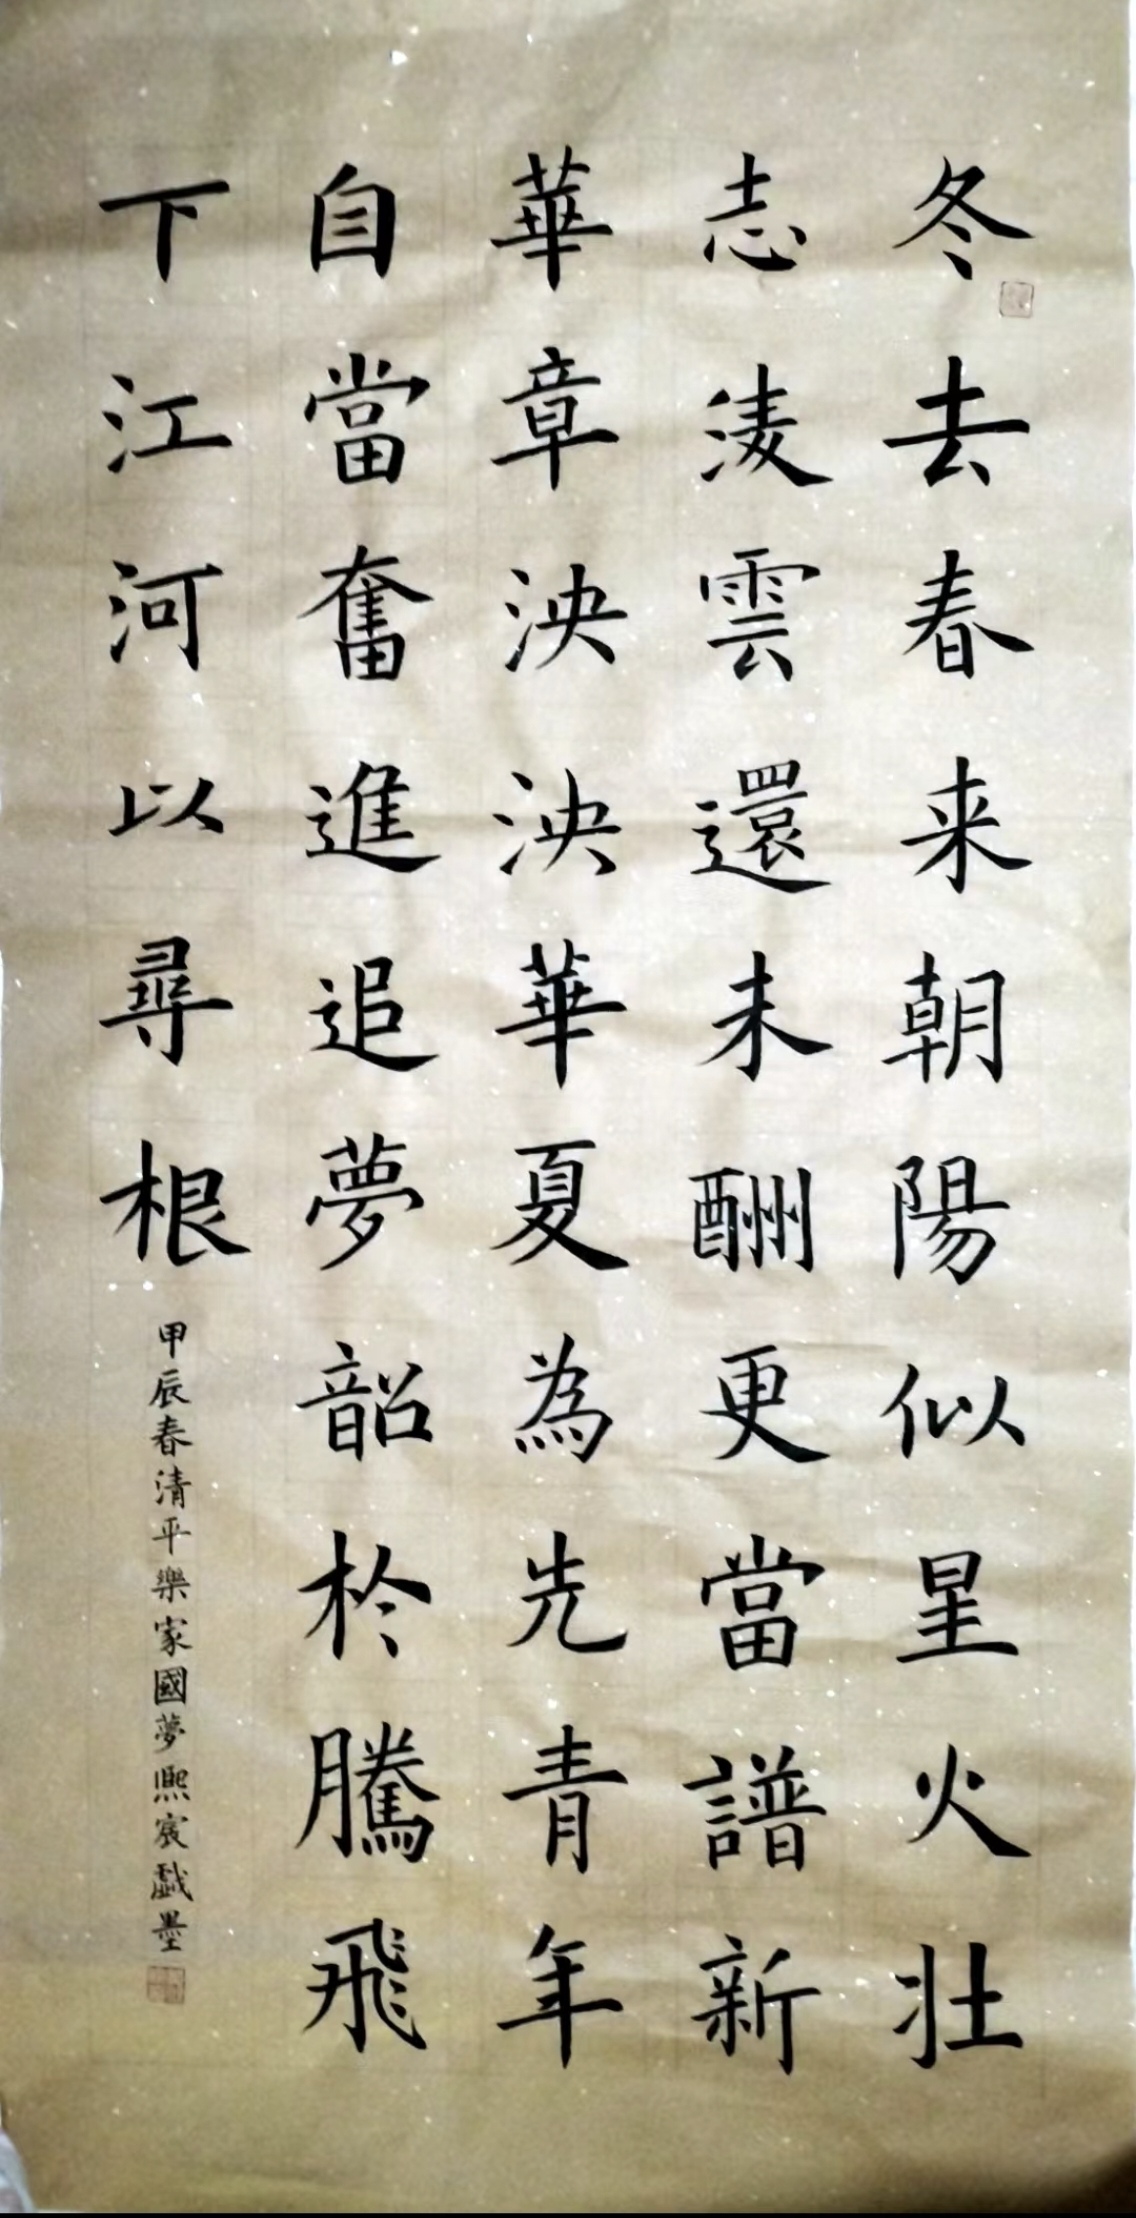 冬去春来朝陽似星火壮
志淩雲還未酬更當譜新
華章泱泱華夏為先青年
自當奮進追夢韶於騰飛
下江河以尋根
甲辰春清平樂家國夢熙宸戯墨